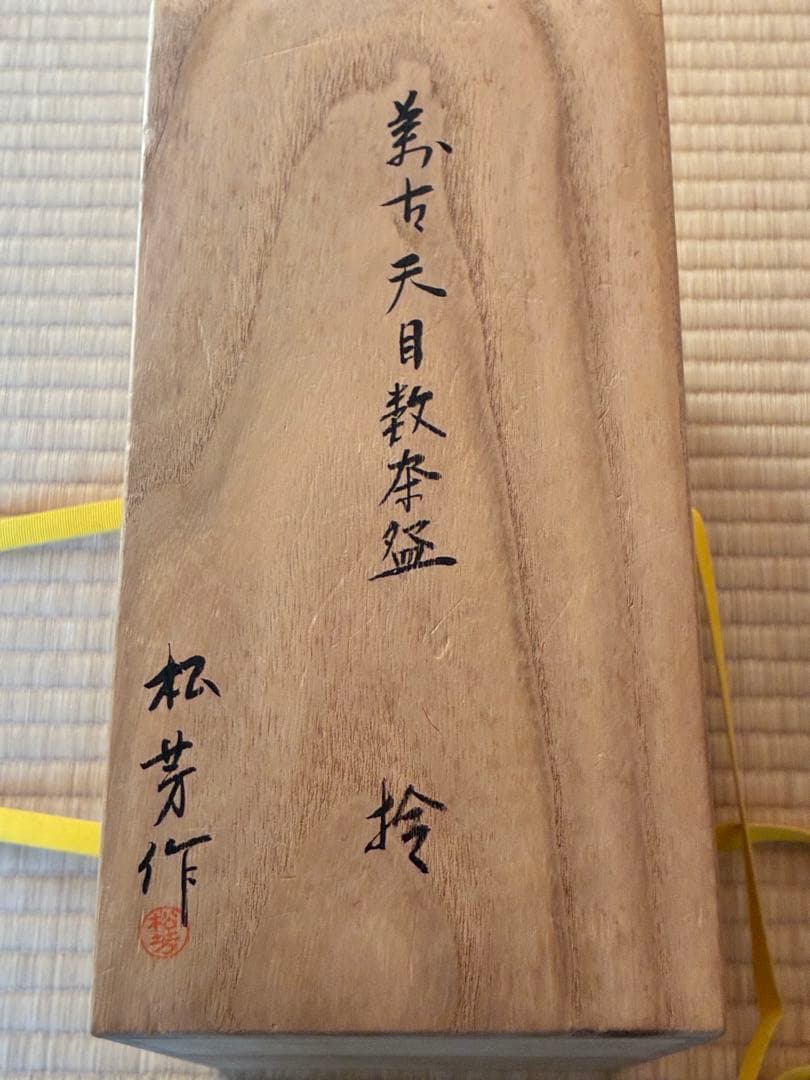 萬古天目数茶盌 拾
松芳作
松芳